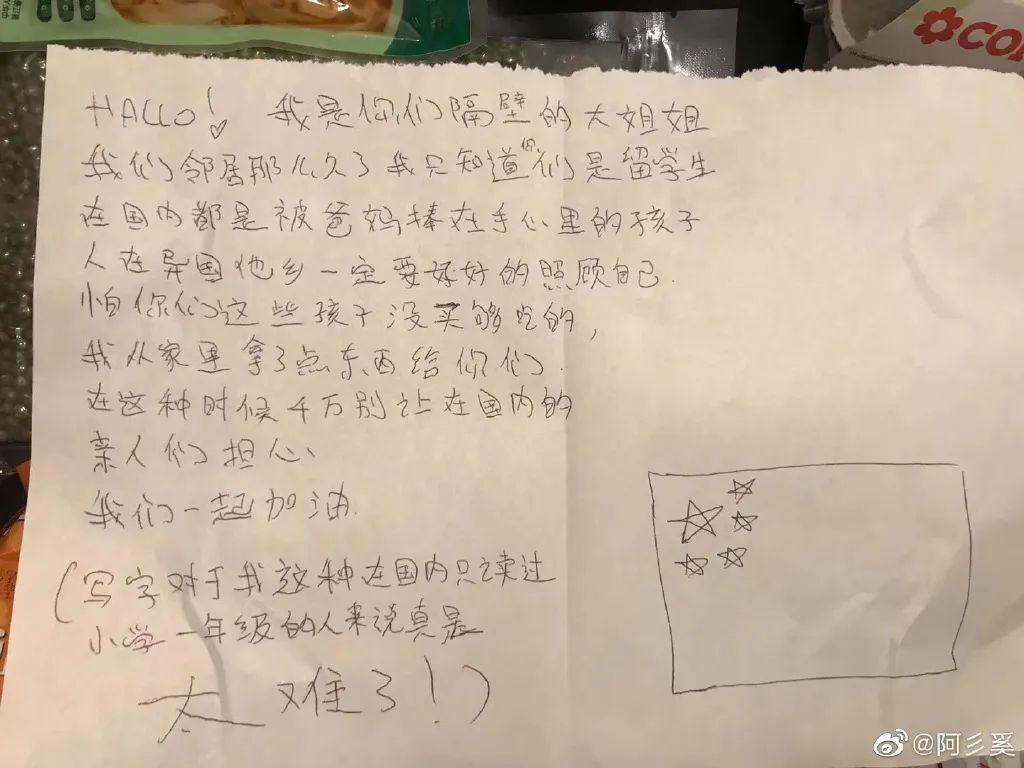 HALLO! 我是你们隔壁的大姐姐
我们邻居那么久了我只知道你们是留学生
在国内都是被爸妈捧在手心里的孩子
人在异国他乡一定要好好的照顾自己.
怕你们这些孩子没买够吃的,
我从家里拿了点东西给你们.
在这种时候千万别让在国内的
亲人们担心、
我们一起加油.
(写字对于我这种在国内只读过
小学一年级的人来说真是
太难了!)
@阿彡奚